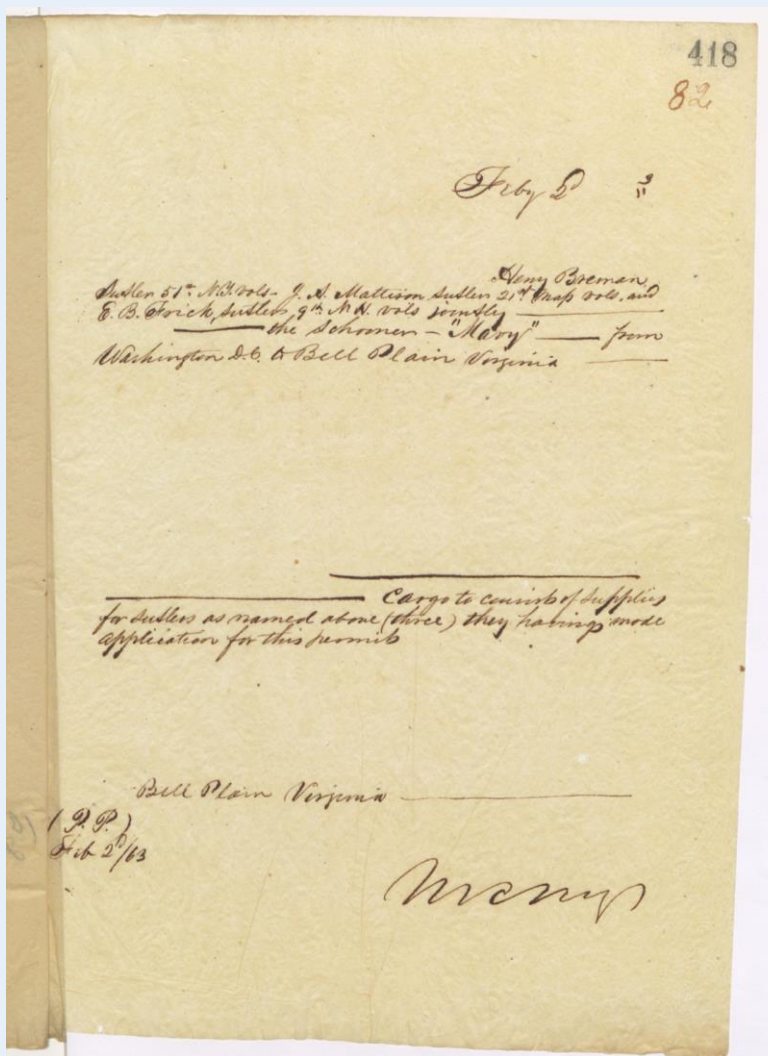 418
82
Feby 2d 3
Henry Breman
Sutler 51st N.Y. vols - J. A. Mattison Sutler 21st Mass vols. and
E. B. Frick, Sutler, 9th N.H. vols jointly
the Schooner - "Mary" - from
Washington D.C. to Bell Plain Virginia
Cargo to consist of supplies
for sutlers as named above (three) they having made
application for this permit
Bell Plain Virginia
(P.P.)
Feb 2d/63